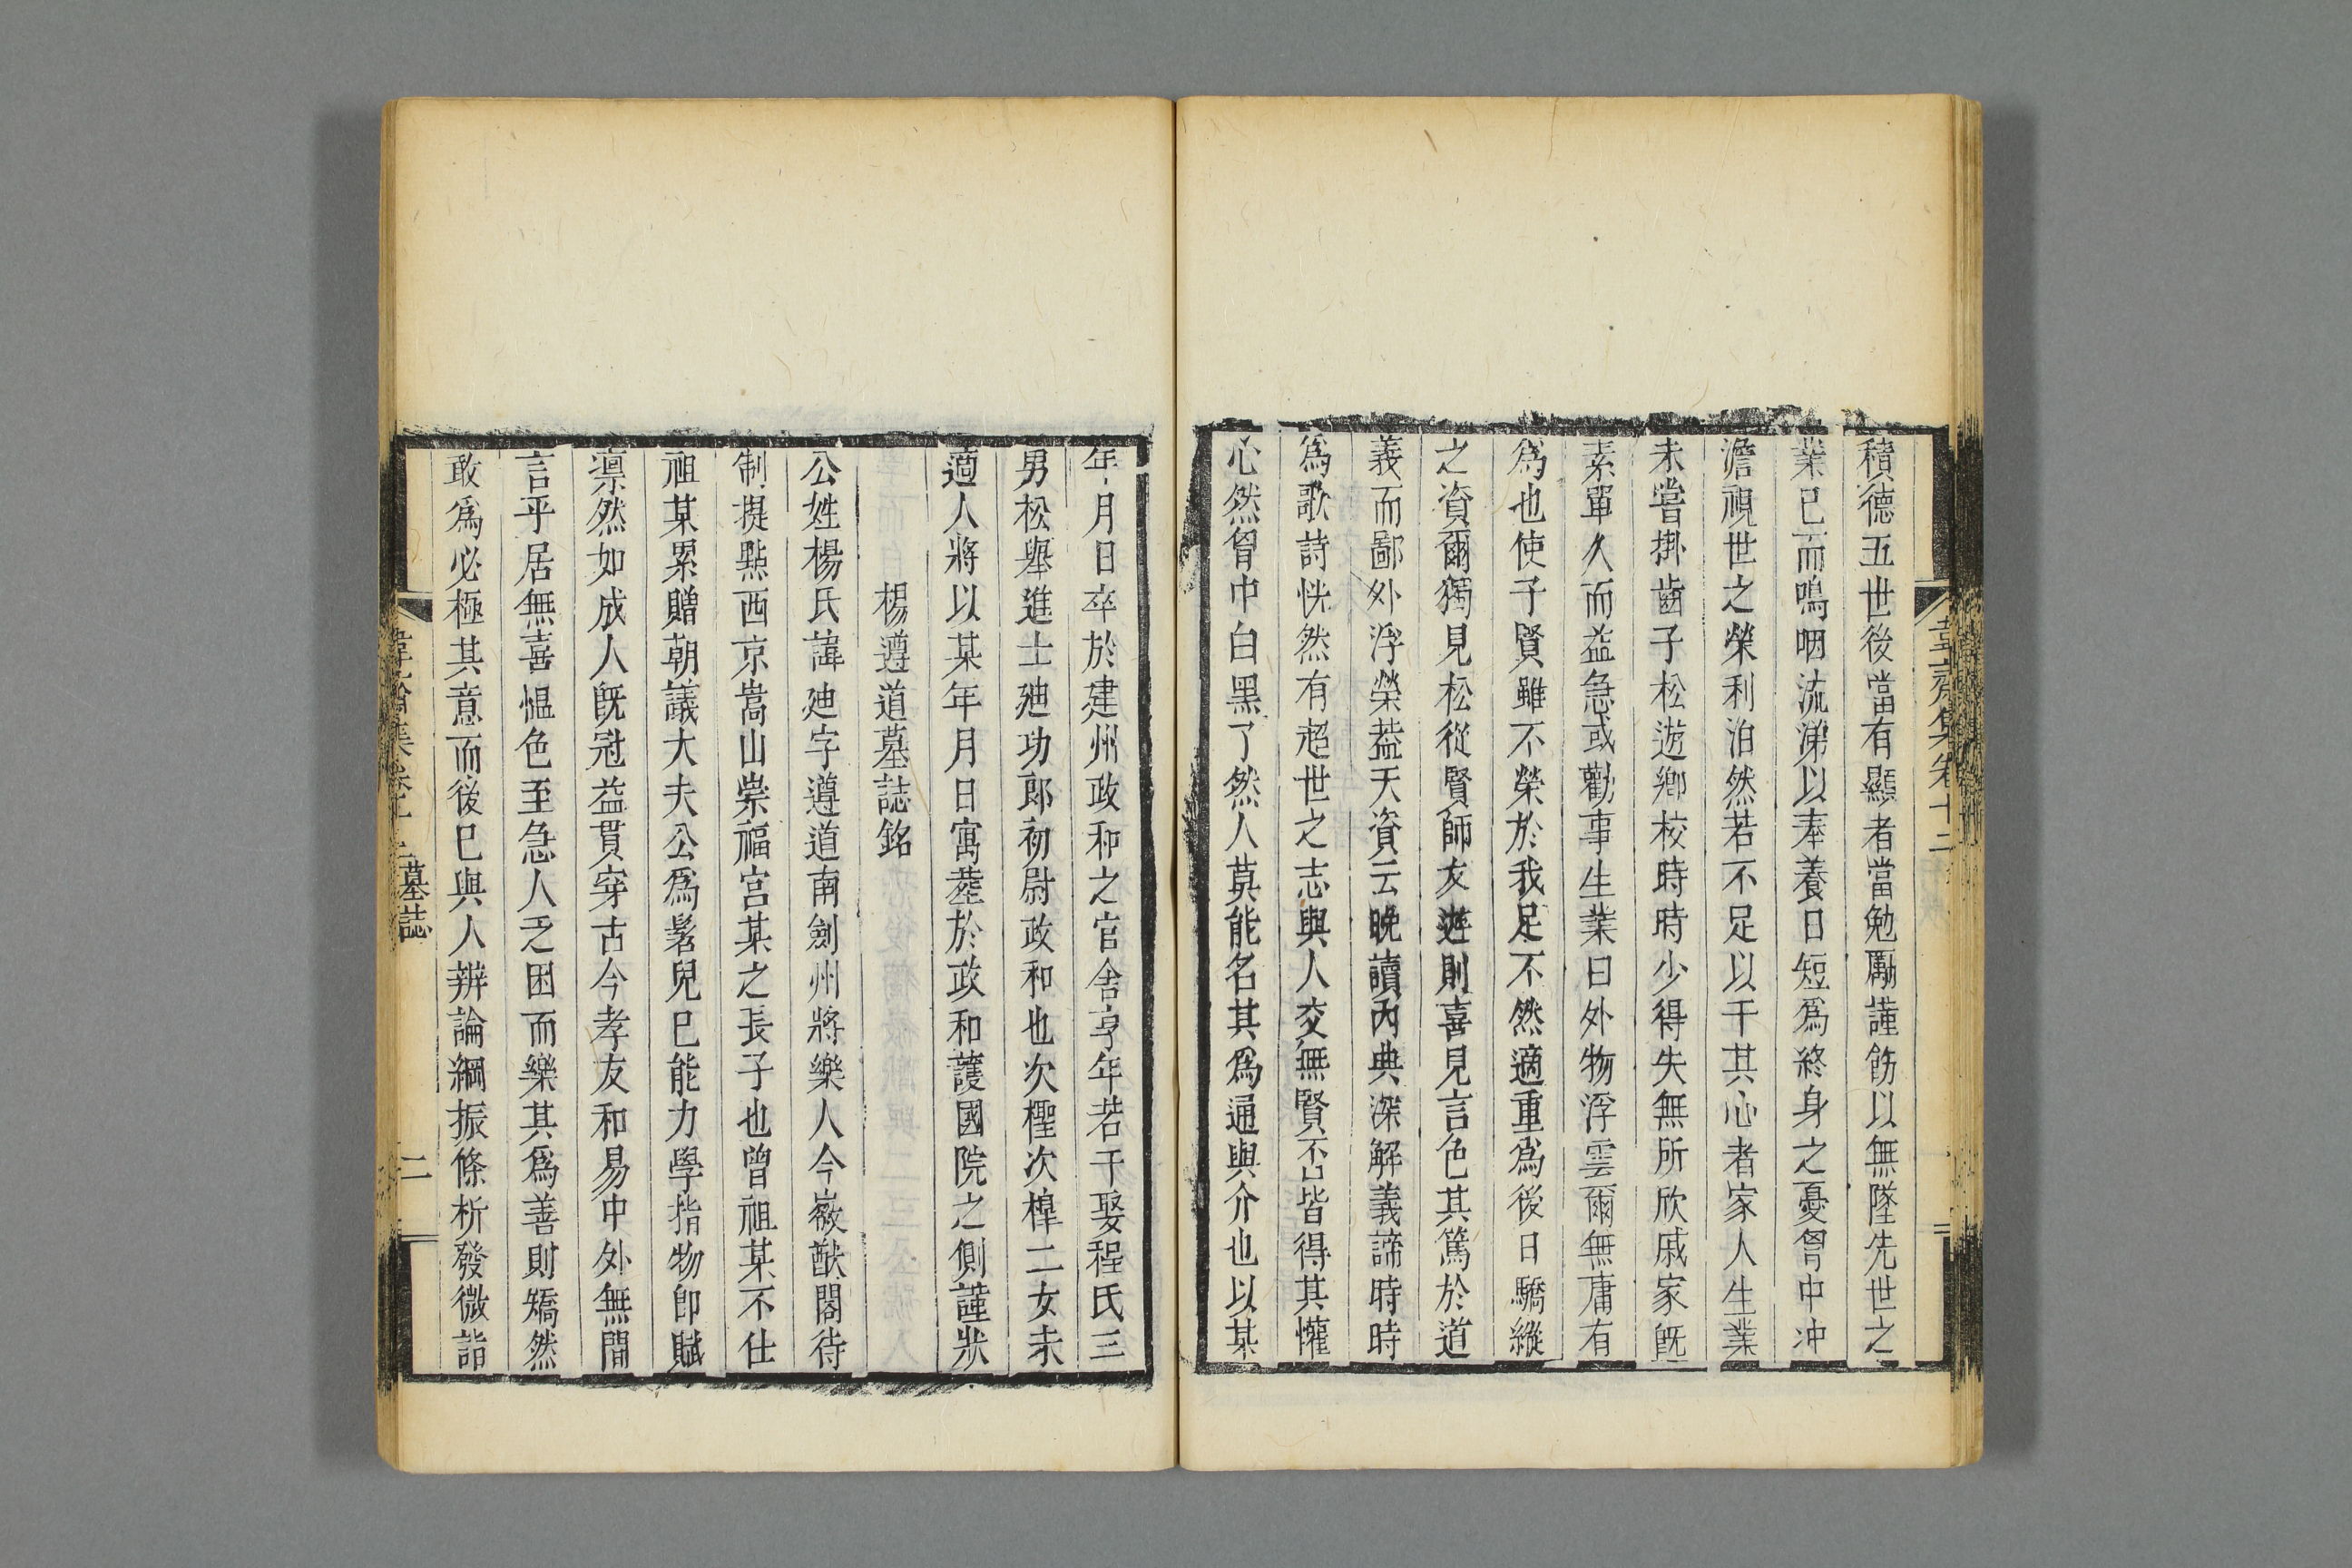 韋齋集卷十二
積德五世後當有顯者當勉勵謹飭以無墜先世之
業已而鳴咽流涕以奉養日短爲終身之憂胷中冲
澹視世之榮利泊然若不足以干其心者家人生業
未嘗掛齒子松遊鄉校時時少得失無所欣戚家旣
素單久而益急或勸事生業曰外物浮雲爾無庸有
爲也使子賢雖不榮於我足不然適重爲後日驕縱
之資爾獨見松從賢師友遊則喜見言色其篤於道
義而鄙外浮榮葢天資云晩讀內典深解義諦時時
爲歌詩恍然有超世之志與人交無賢否皆得其懽
心然胷中白黑了然人莫能名其爲通與介也以某
年月日卒於建州政和之官舍享年若干娶程氏三
男松舉進士廸功郎初尉政和也次檉次槔二女未
適人將以某年月日寓葬於政和護國院之側謹狀
楊遵道墓誌銘
公姓楊氏諱廸字遵道南劍州將樂人今徽猷閣待
制提點西京嵩山崇福宮某之長子也曾祖某不仕
祖某累贈朝議大夫公爲髫兒已能力學指物卽賦
凛然如成人旣冠益貫穿古今孝友和易中外無間
言乎居無喜慍色至急人乏困而樂其爲善則矯然
敢爲必極其意而後已與人辨論綱振條析發微詣
韋齋集卷十二 墓誌 二